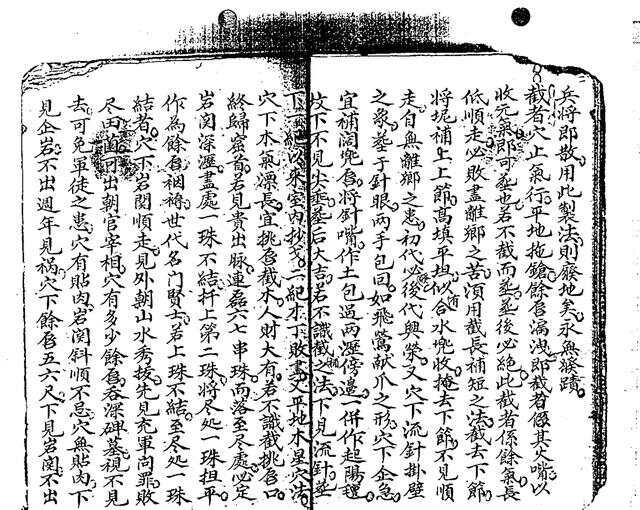 兵將即散用此製法則廢地矣永無蹤蹟
截者穴止氣行平地拖鎗餘唇漏洩即截者餘其火嘴以
收元氣即可塟也若不截而塟塟後必絕此截者係餘氣長
低順走必敗盡離鄉之苦須用截長補短之法截去下節
將坭補上上節高填平坦以合水兠收掩去下節不見順
走自無離鄉之患初代必後代興榮又穴下流針掛壁
之象塟于針眼兩手包回如飛鶯献爪之形穴下企急
宜補濶兠唇將針嘴作土包過兩瀝傍邉一併作起陽
坟下不見尖塟后大吉若不識截法下見流針塟
下一紀以來室內抄一紀下敗盡平地木星穴法
穴下木氣漂長宜挑唇截木人財大有若不識截挑唇口
終歸蜜首若見貴出脉連磊六七串珠而落至尽處必定
岩闵深瀝盡處一珠不結扦上第二珠將尽処一珠担平
作為餘唇裀褥世代名門賢士若上珠不結至尽処一珠
結者穴下岩闵順走見外朝山水秀接先見充軍问罪敗
尽田可出朝官宰相穴有多少餘唇吞深碑墓視不見
去可免軍徒之患穴有貼肉岩闵斜順不忌穴無貼肉下
見企岩不出週年見祸穴下餘唇五六尺下見岩闵不出